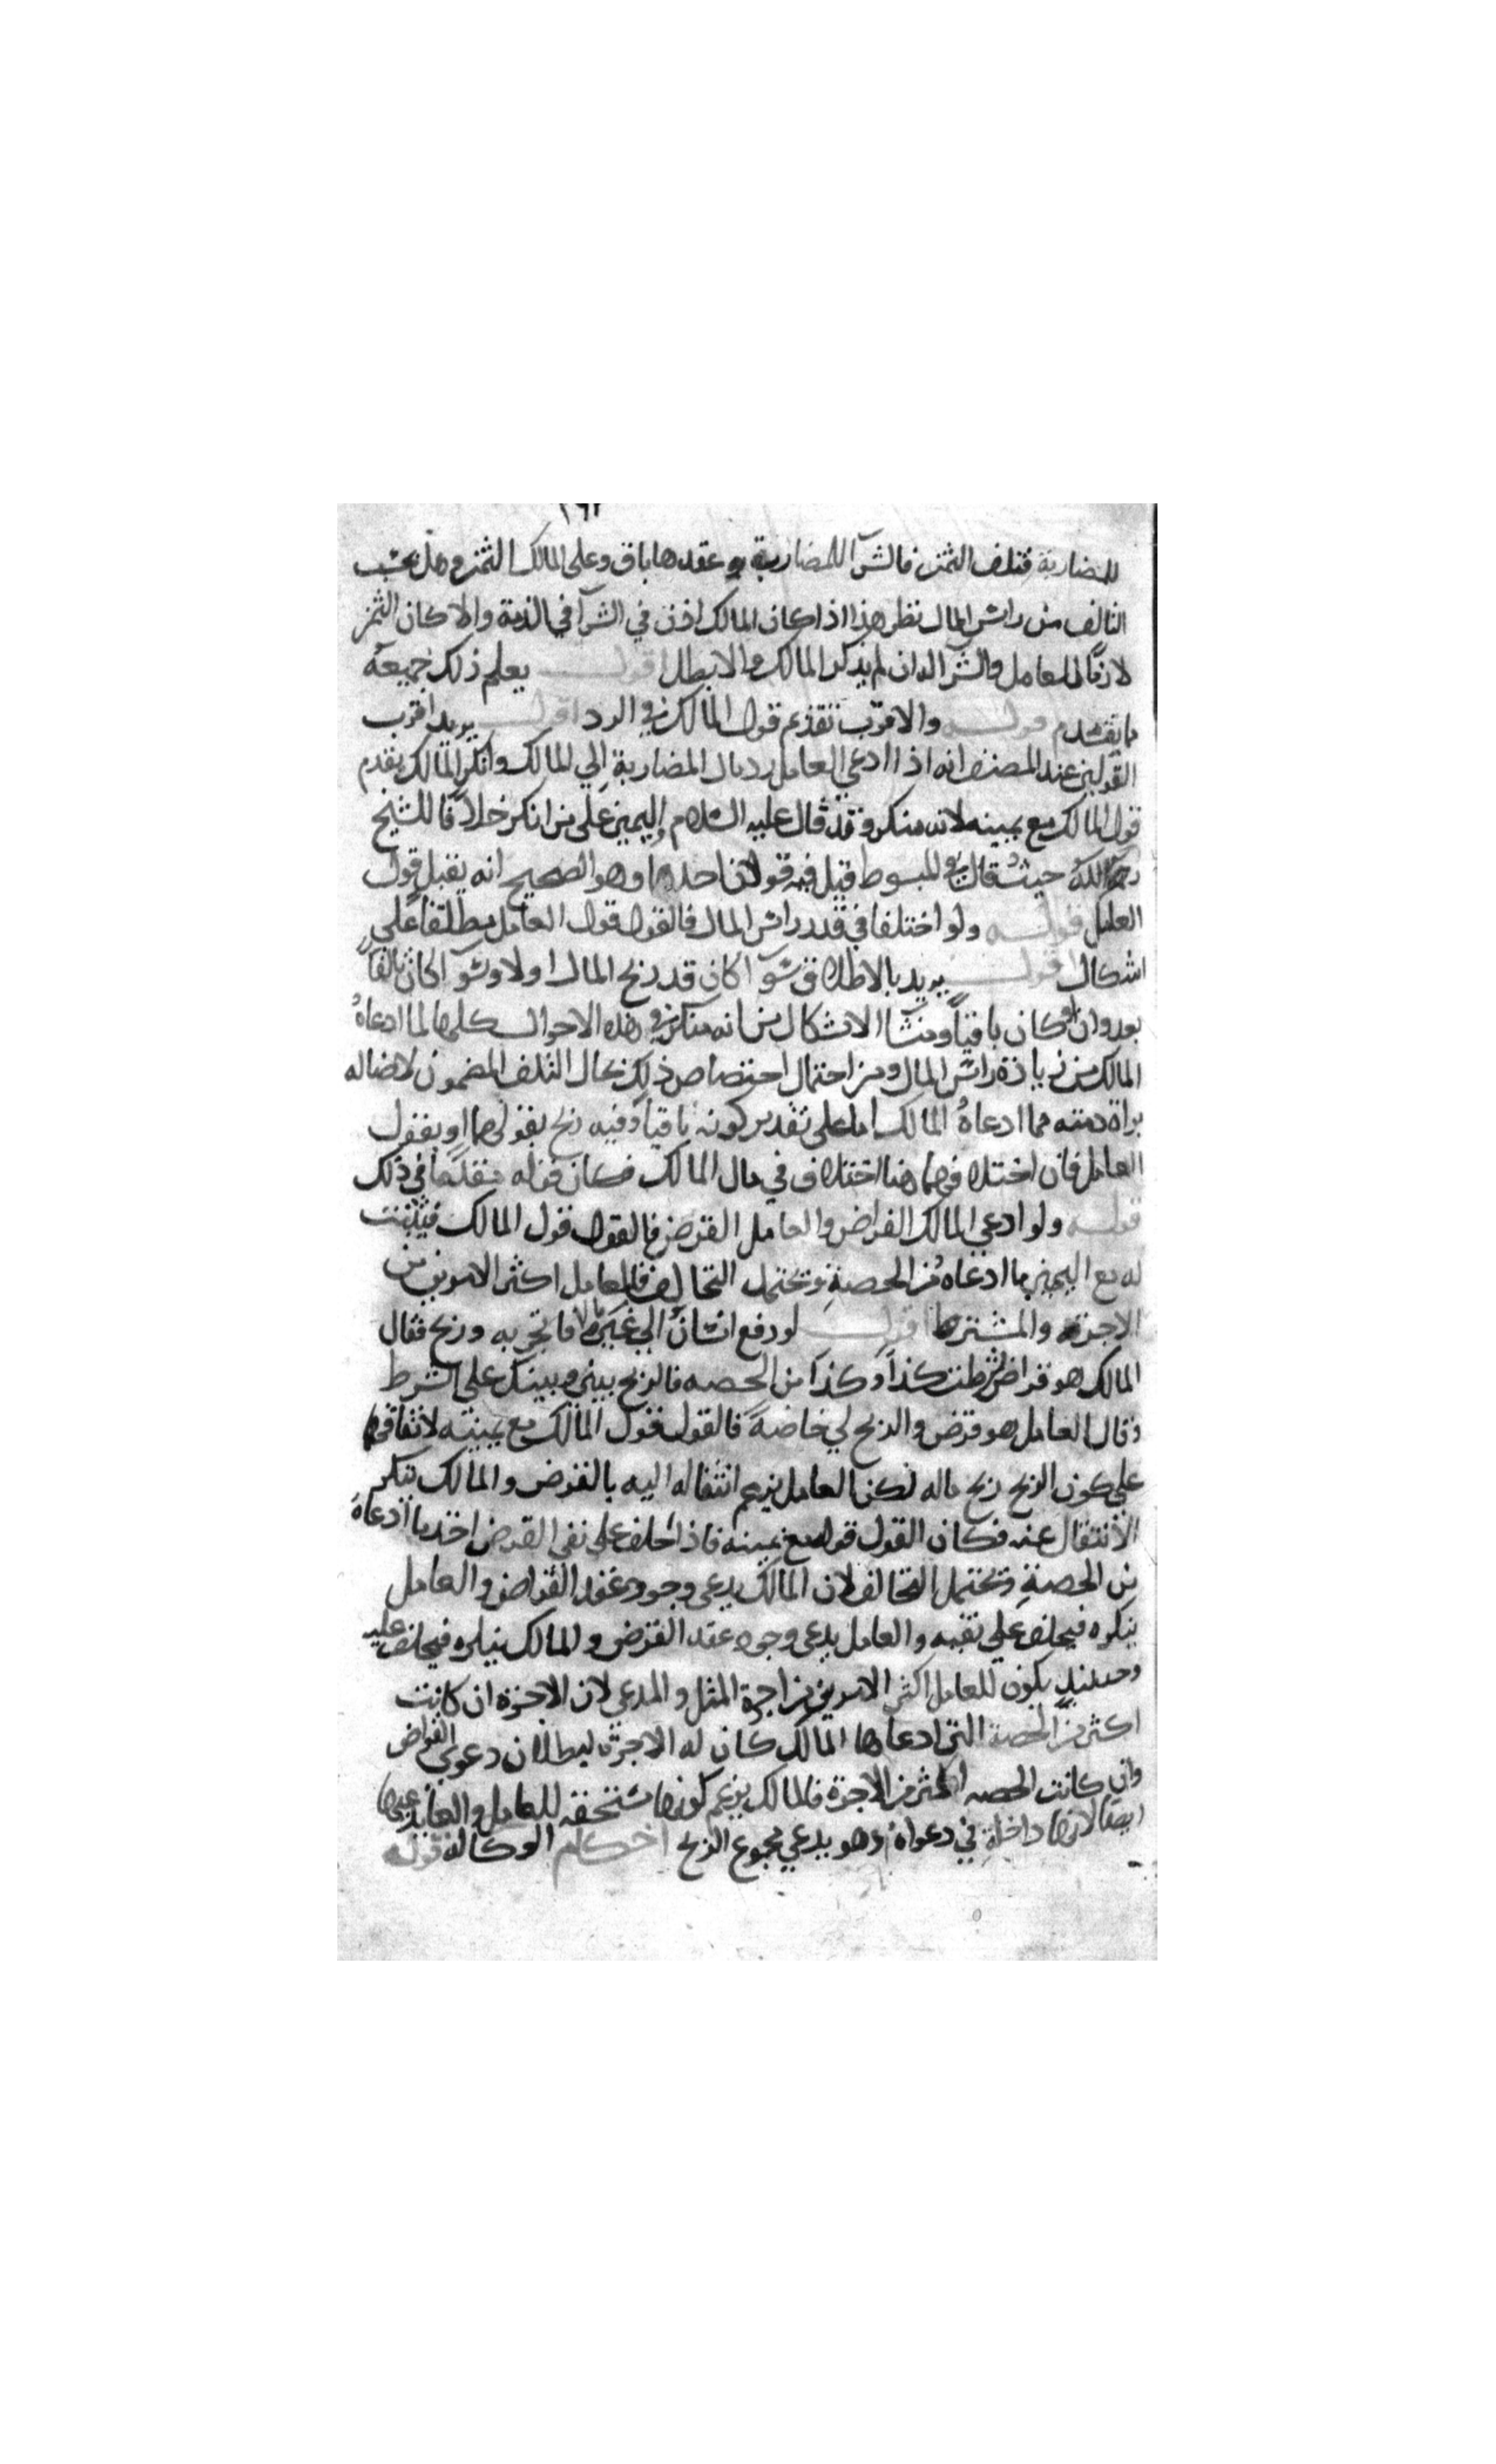 للمضاربة فتلف الثمن فالشرآ للمضاربة و عقدها باق وعلى المالك الثمن وهل يحسب
التالف من راس المال نظر هذا اذا كان المالك اذن في الشرآ في الذمة والا كان الثمن
لازما للعامل والشرآ له ان لم يذكر المالك والا بطل اقول يعلم ذلك جميعه
مما تقدم قوله والاقرب تقديم قول المالك في الرد اقول يريد اقرب
القولين عند المصنف انه اذا ادعى العامل رد مال المضاربة إلي المالك وانكر المالك يقدم
قول المالك مع يمينه لانه منكر وقد قال عليه السلام واليمين على من انكر خلافا للشيخ
رحمه الله حيث قال في المبسوط قيل فيه قولان احدهما وهو الصحيح انه يقبل قول
العامل قوله ولو اختلفا في قدر راس المال فالقول قول العامل مطلقا على
اشكال اقول يريد بالاطلاق سوآ كان قد ربح المال اولا وسوآ كان تالفا
او كان باقيا ومنشا الاشكال من انه منكر في هذه الاحوال كلها لما ادعاه
المالك من زيادة راس المال ومن احتمال اختصاص ذلك بحال التلف المضمون لاصاله
براة ذمته مما ادعاه المالك اما على تقدير كونه باقيا وفيه ربح بقولهما او بقول
العامل فان اختلافهما هنا اختلاف في مال المالك فكان قوله مقدما في ذلك
قوله ولو ادعي المالك القراض والعامل القرض فالقول قول المالك فيثبت
له مع اليمين ما ادعاه من الحصة ويحتمل التحالف فللعامل اكثر الامرين من
الاجرة والمشترط اقول لو دفع انسان الي غيره مالا فاتجر به وربح فقال
المالك هو قراض شرطت كذا وكذا من الحصه فالربح بيني وبينك على الشرط
وقال العامل هو قرض والربح لي خاصة فالقول قول المالك مع يمينه لاتفاقهما
على كون الربح ربح ماله لكن العامل يزعم انتقاله اليه بالقرض والمالك ينكر
الانتقال عنه فكان القول قوله مع يمينه فاذا حلف على نفي القرض اخذ ما ادعاه
من الحصة ويحتمل التحالف لان المالك يدعي وجود عقد القراض والعامل
ينكره فيحلف على نفيه والعامل يدعي وجود عقد القرض والمالك ينكره فيحلف عليه
وحينئذ يكون للعامل اكثر الامرين من اجرة المثل والمدعى لان الاجرة ان كانت
اكثر من الحصة التي ادعاها المالك كان له الاجرة لبطلان دعوي القراض
وان كانت الحصه اكثر من الاجرة فالمالك يزعم كونها مستحقه للعامل والعامل يدعيها
ايضا لانها داخلة في دعواه وهو يدعي مجموع الربح احكام الوكالة قوله